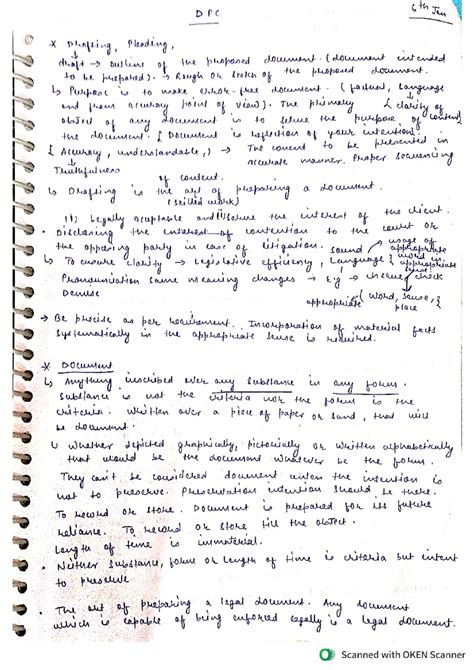 DPC
6th Jan
* Drafting, Pleading,
draft → outline of the proposed document. (document intended
to be prepared). → Rough or sketch of the proposed document.
↳ Purpose is to make error-free document. (factual, language
and from accuracy point of view). The primary { clarity of
object of any document is to serve the purpose of content}
the document. { Document is reflection of your intention}
{ Accuracy, understandable, } → The content to be presented in
Truthfulness accurate manner. Proper sequencing
of content.
↳ Drafting is the art of preparing a document.
(skilled work)
(i) Legally acceptable and (ii) secure the interest of the client.
• Disclosing the interest of contention to the court or
the opposing party in case of litigation.
sound usage of appropriate
↳ To ensure clarity → Legislative efficiency, Language } word in appropriate sense
Pronunciation same meaning changes → e.g → cheque check
Demise appropriate (word, sense, &
place
→ Be precise as per requirement. Incorporation of material facts
systematically in the appropriate sense is required.
* Document
↳ Anything inscribed over any substance in any form.
Substance is not the criteria nor the form is the
criteria. Written over a piece of paper or sand, that will
be document.
↳ Whether depicted graphically, pictorially or written alphabetically
that would be the document whatever be the form.
They can't be considered document unless the intention is
not to preserve. Preservation intention should be there.
To record or store. Document is prepared for its future
reliance. To record or store till the object.
Length of time is immaterial.
• Neither substance, form or length of time is criteria but intent
to preserve
• The art of preparing a legal document. Any document
which is capable of being enforced legally is a legal document.
Scanned with OKEN Scanner